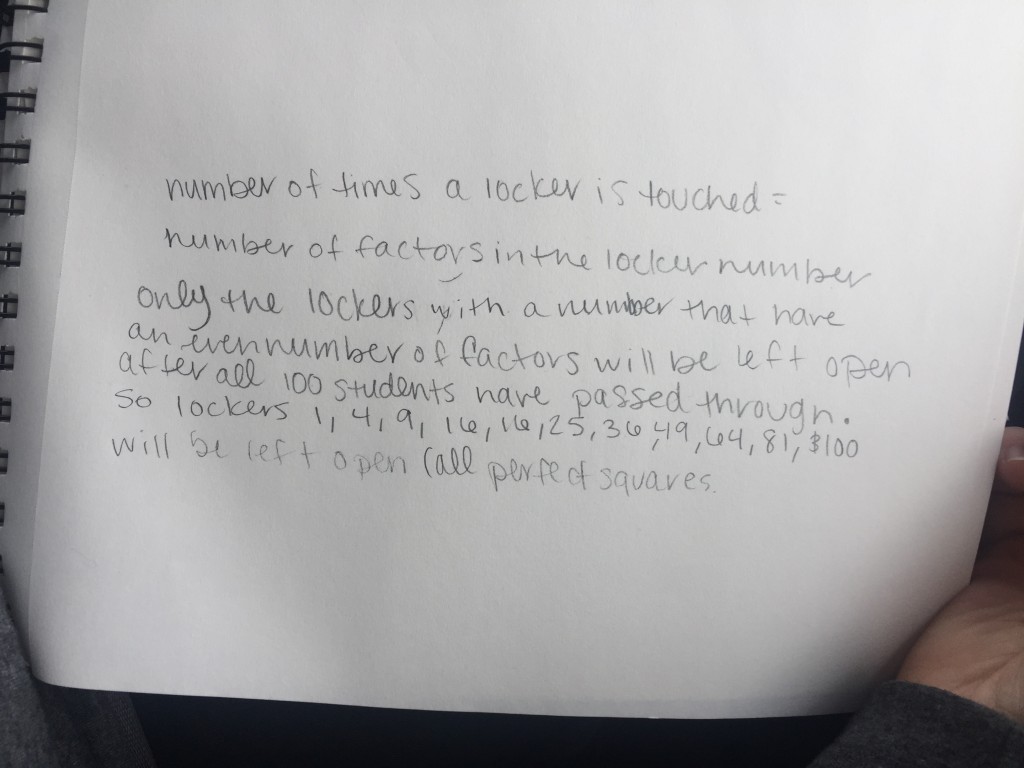 number of times a locker is touched =
number of factors in the locker number
only the lockers with a number that have
an even number of factors will be left open
after all 100 students have passed through.
so lockers 1, 4, 9, 16, 16, 25, 36, 49, 64, 81, $100
will be left open (all perfect squares.